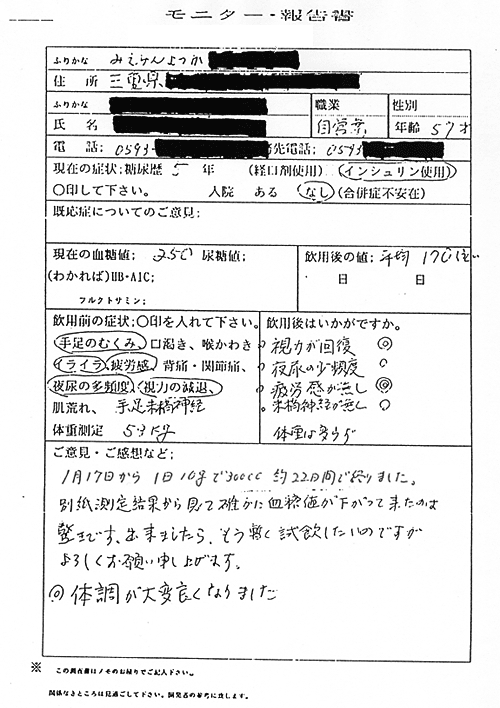 モニター・報告書
ふりかな みえけんよっか
住 所 三重県
ふりかな
氏 名
職業 自営業
性別
年齢 57才
電 話; 0593- 先電話; 0593
現在の症状;糖尿歴 5 年 (経口剤使用) (インシュリン使用)
〇印して下さい。 入院 ある (なし) (合併症不安在)
既応症についてのご意見;
現在の血糖値; 250 尿糖値;
(わかれば)HB・A1C;
フルクトサミン;
飲用後の値; 平均 170位
日 日
飲用前の症状;〇印を入れて下さい。
手足のむくみ、口渇き、喉かわき
イライラ、疲労感、背痛・関節痛、
夜尿の多頻度、視力の減退、
肌荒れ、手足末梢神経
体重測定 53kg
飲用後はいかがですか。
視力が回復 ◎
夜尿の少頻度 ○
疲労感が無し ◎
末梢神経が無し ○
体重は変らず
ご意見・ご感想など;
1月17日から1日10gで300cc 約22日間で終りました。
別紙測定結果から見て確かに血糖値が下がって来たのは
驚きです、出来ましたら、もう暫く試飲したいのですが
よろしくお願い申し上げます。
◎体調が大変良くなりました
※ この調査書はノそのお帰りでご記入下さい。
関係なきところは見過ごして下さい。開発者の参考に致します。